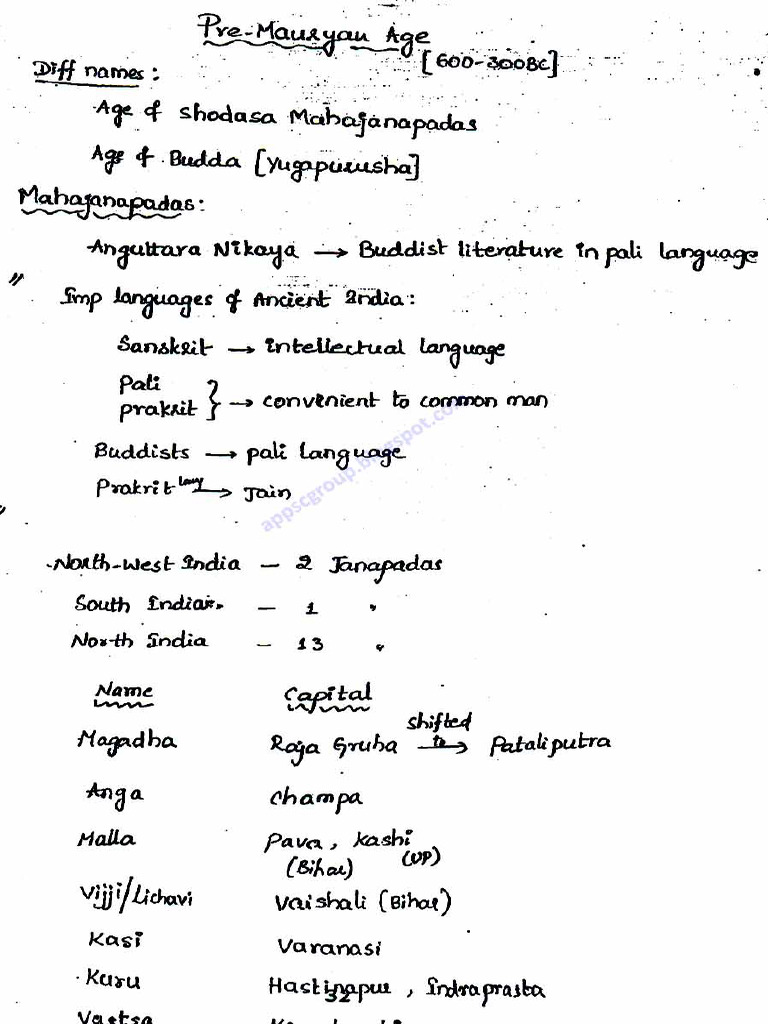 Pre-Mauryan Age
[600-300BC]
Diff names:
Age of Shodasa Mahajanapadas
Age of Budda [Yugapurusha]
Mahajanapadas:
Anguttara Nikaya → Buddist literature in pali language
Imp languages of Ancient India:
Sanskrit → intellectual language
Pali
prakrit } → convenient to common man
Buddists → pali language
Prakrit lang → Jain
appscgroup.blogspot.com
North-West India - 2 Janapadas
South India - 1 "
North India - 13 "
Name Capital
Magadha Raja Gruha shifted to → Pataliputra
Anga Champa
Malla Pava, Kashi
(Bihar) (UP)
Vijji/Lichavi Vaishali (Bihar)
Kasi Varanasi
Kuru Hastinapur, Indraprasta
32
Vastsa